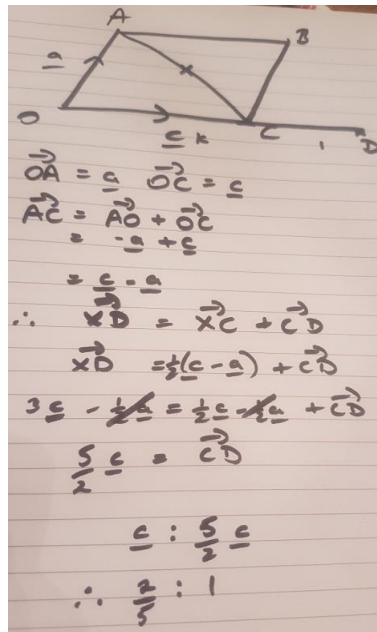 A
B
a
x
O
C
c k
1
D
OA→ = a OC→ = c
AC→ = AO→ + OC→
= -a + c
= c - a
∴ XD→ = XC→ + CD→
XD→ = ½(c - a) + CD→
3c - ½a = ½c - ½a + CD→
5/2 c = CD→
c : 5/2 c
∴ 2/5 : 1